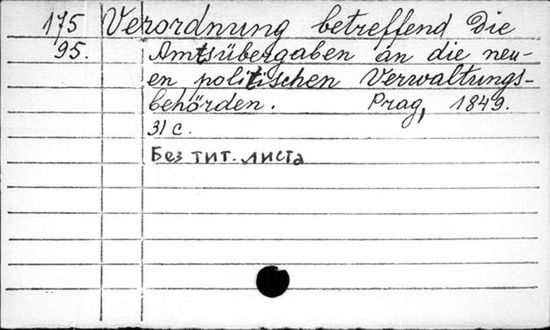 175 Verordnung betreffend Die
95. Amtsübergaben an die neu-
en politischen Verwaltungs-
behörden. Prag, 1849.
31 с.
Без тит. листа